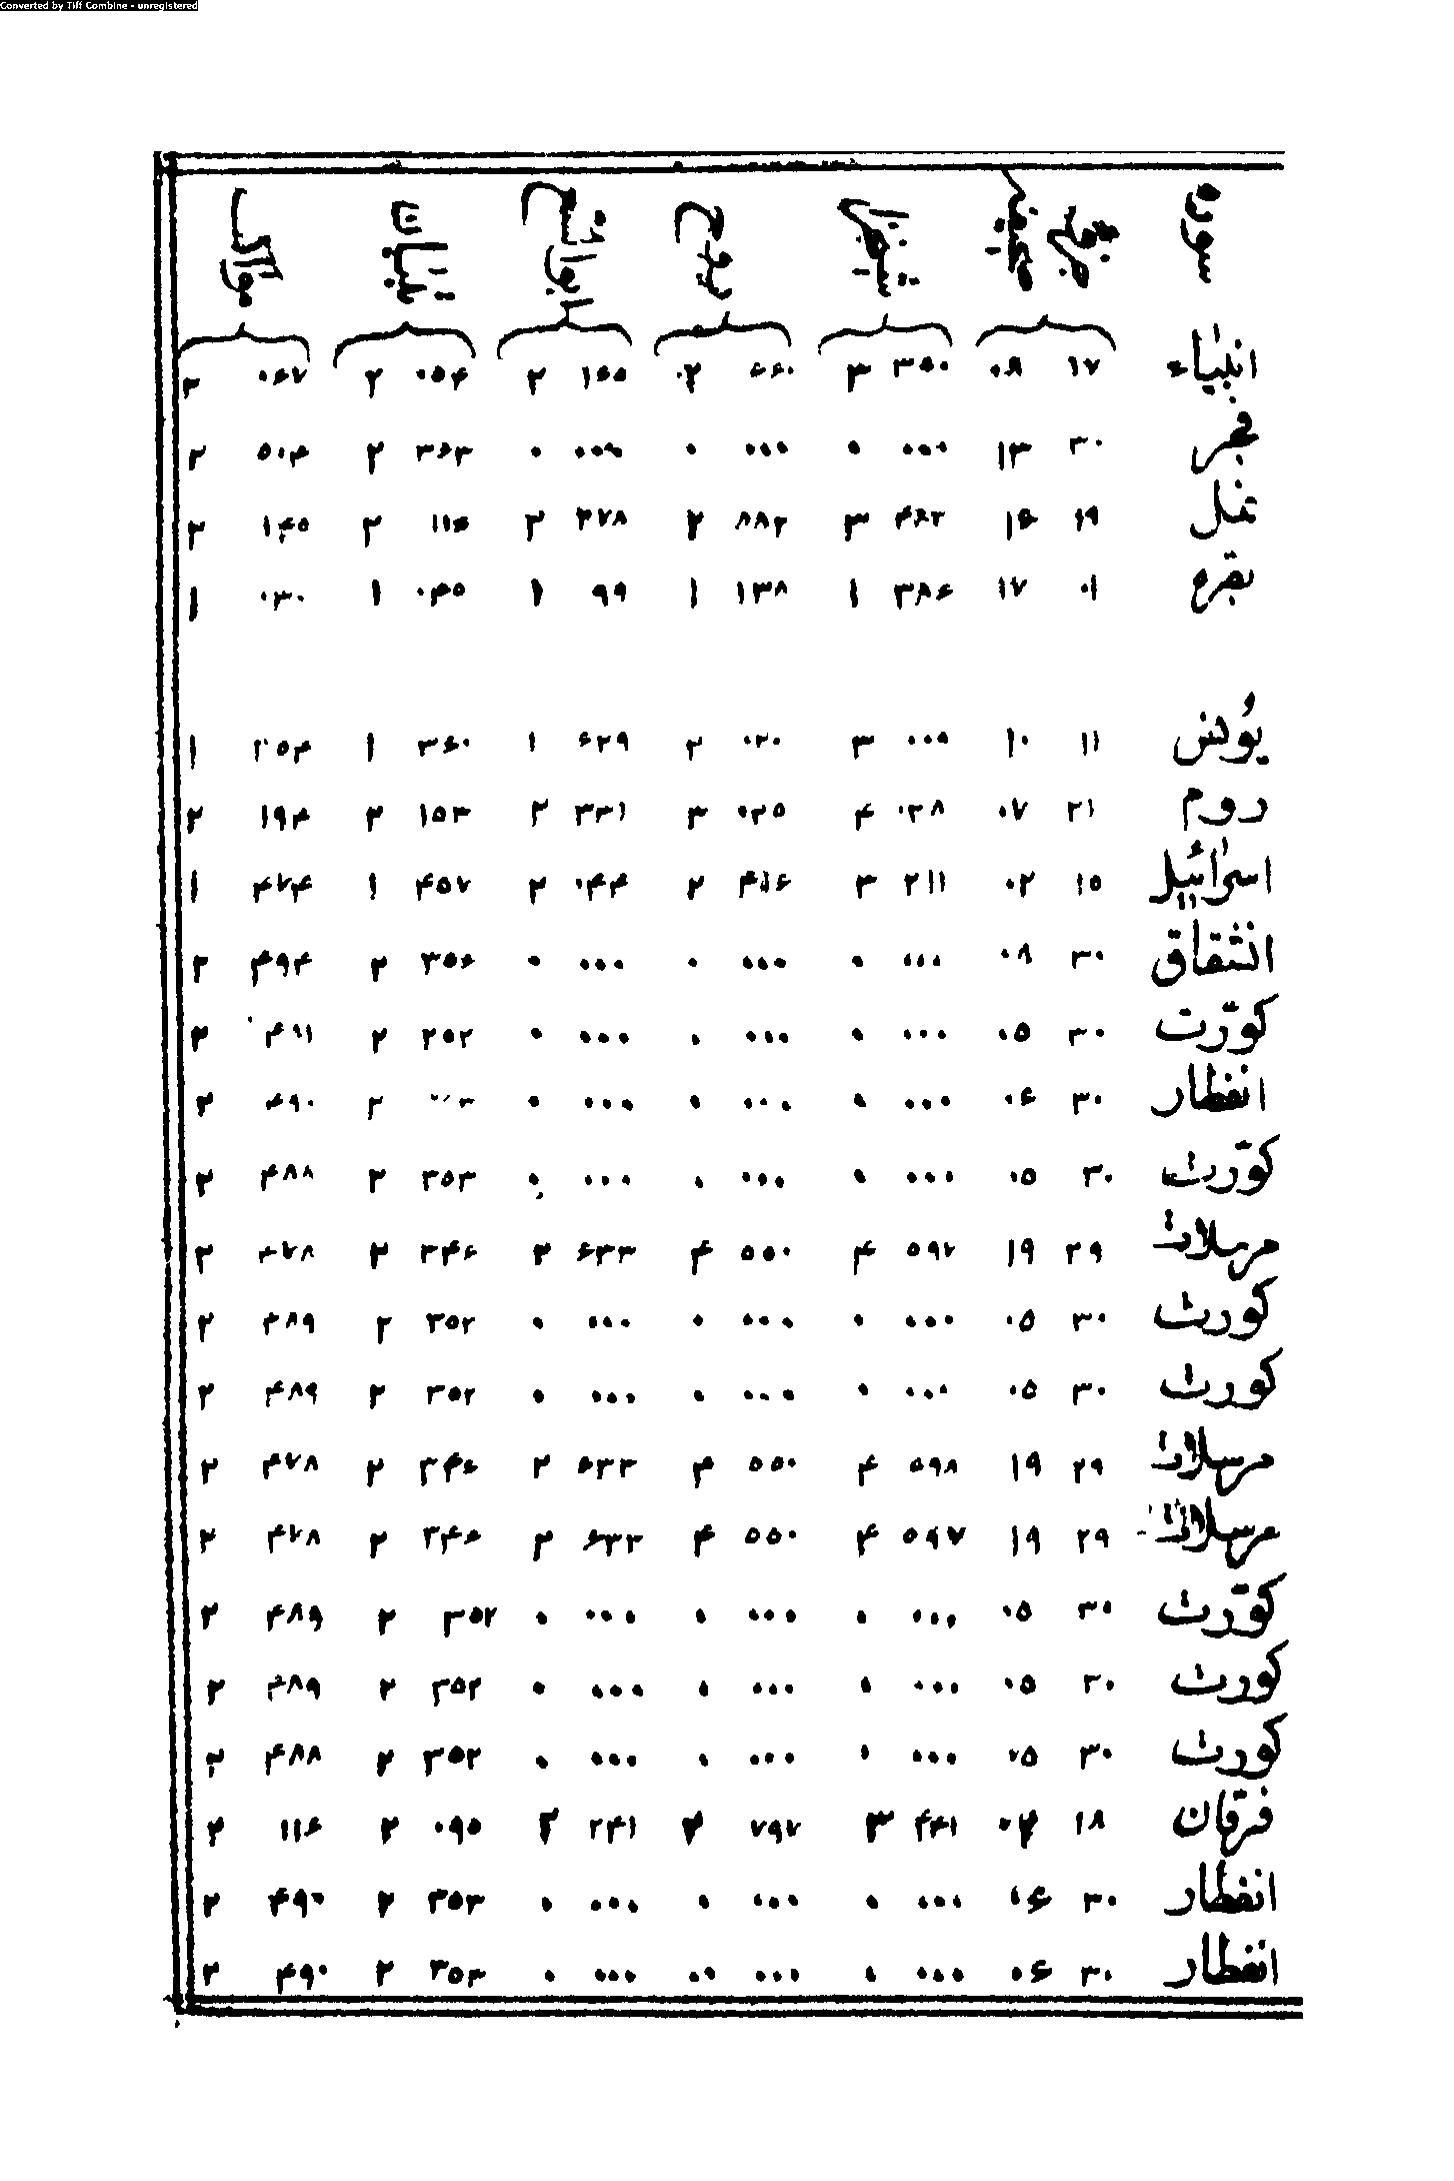 Converted by Tiff Combine - unregistered
سوره روح
انبیاء ۱۷ ۰۸ ۳۵۰ ۳ ۶۶۰ ۲ ۱۶۵ ۲ ۰۵۴ ۲ ۰۶۷ ۲
فجر ۳۰ ۱۳ ۰۰۰ ۰ ۰۰۰ ۰ ۰۰۰ ۰ ۳۶۳ ۲ ۵۰۴ ۲
نمل ۱۹ ۱۶ ۳ ۸۸۲ ۲ ۲۷۸ ۲ ۱۱۶ ۲ ۱۴۵ ۲
بقره ۰۱ ۱۷ ۳۸۶ ۱ ۱۳۸ ۱ ۹۹ ۱ ۰۴۵ ۱ ۰۳۰ ۱
یونس ۱۱ ۱۰ ۰۰۹ ۳ ۰۲۰ ۲ ۶۲۹ ۱ ۳۶۰ ۱ ۳۵۴ ۱
روم ۲۱ ۰۷ ۰۲۸ ۴ ۰۲۵ ۳ ۳۳۱ ۲ ۱۵۳ ۲ ۱۹۴ ۲
اسرائیل ۱۵ ۰۲ ۲۱۱ ۳ ۴۱۶ ۲ ۰۴۴ ۲ ۴۵۷ ۱ ۴۷۴ ۱
انشقاق ۳۰ ۰۸ ۰۰۰ ۰ ۰۰۰ ۰ ۰۰۰ ۰ ۳۵۶ ۲ ۴۹۴ ۲
کوّرت ۳۰ ۰۵ ۰۰۰ ۰ ۰۰۰ ۰ ۰۰۰ ۰ ۲۵۲ ۲ ۴۹۱ ۲
انفطار ۳۰ ۰۶ ۰۰۰ ۰ ۰۰۰ ۰ ۰۰۰ ۰ ۲ ۴۹۰ ۲
کوّرت ۳۰ ۰۵ ۰۰۰ ۰ ۰۰۰ ۰ ۰۰۰ ۰ ۳۵۳ ۲ ۴۸۸ ۲
مرسلات ۲۹ ۱۹ ۵۹۷ ۴ ۵۵۰ ۴ ۶۳۳ ۲ ۳۴۶ ۲ ۴۷۸ ۲
کورت ۳۰ ۰۵ ۰۰۰ ۰ ۰۰۰ ۰ ۰۰۰ ۰ ۳۵۲ ۲ ۴۸۹ ۲
کورت ۳۰ ۰۵ ۰۰۰ ۰ ۰۰۰ ۰ ۰۰۰ ۰ ۳۵۲ ۲ ۴۸۹ ۲
مرسلات ۲۹ ۱۹ ۵۹۸ ۴ ۵۵۰ ۴ ۶۳۳ ۲ ۳۴۶ ۲ ۴۷۸ ۲
مرسلات ۲۹ ۱۹ ۵۹۷ ۴ ۵۵۰ ۴ ۶۳۳ ۲ ۳۴۶ ۲ ۴۷۸ ۲
کوّرت ۳۰ ۰۵ ۰۰۰ ۰ ۰۰۰ ۰ ۰۰۰ ۰ ۳۵۲ ۲ ۴۸۹ ۲
کورت ۳۰ ۰۵ ۰۰۰ ۰ ۰۰۰ ۰ ۰۰۰ ۰ ۳۵۲ ۲ ۴۸۹ ۲
کورت ۳۰ ۰۵ ۰۰۰ ۰ ۰۰۰ ۰ ۰۰۰ ۰ ۳۵۲ ۲ ۴۸۸ ۲
فرقان ۱۸ ۰۴ ۴۴۱ ۳ ۷۹۷ ۲ ۲۴۱ ۲ ۰۹۵ ۲ ۱۱۶ ۲
انفطار ۳۰ ۰۶ ۰۰۰ ۰ ۰۰۰ ۰ ۰۰۰ ۰ ۳۵۳ ۲ ۴۹۰ ۲
انفطار ۳۰ ۰۶ ۰۰۰ ۰ ۰۰۰ ۰۰ ۰۰۰ ۰ ۳۵۳ ۲ ۴۹۰ ۲